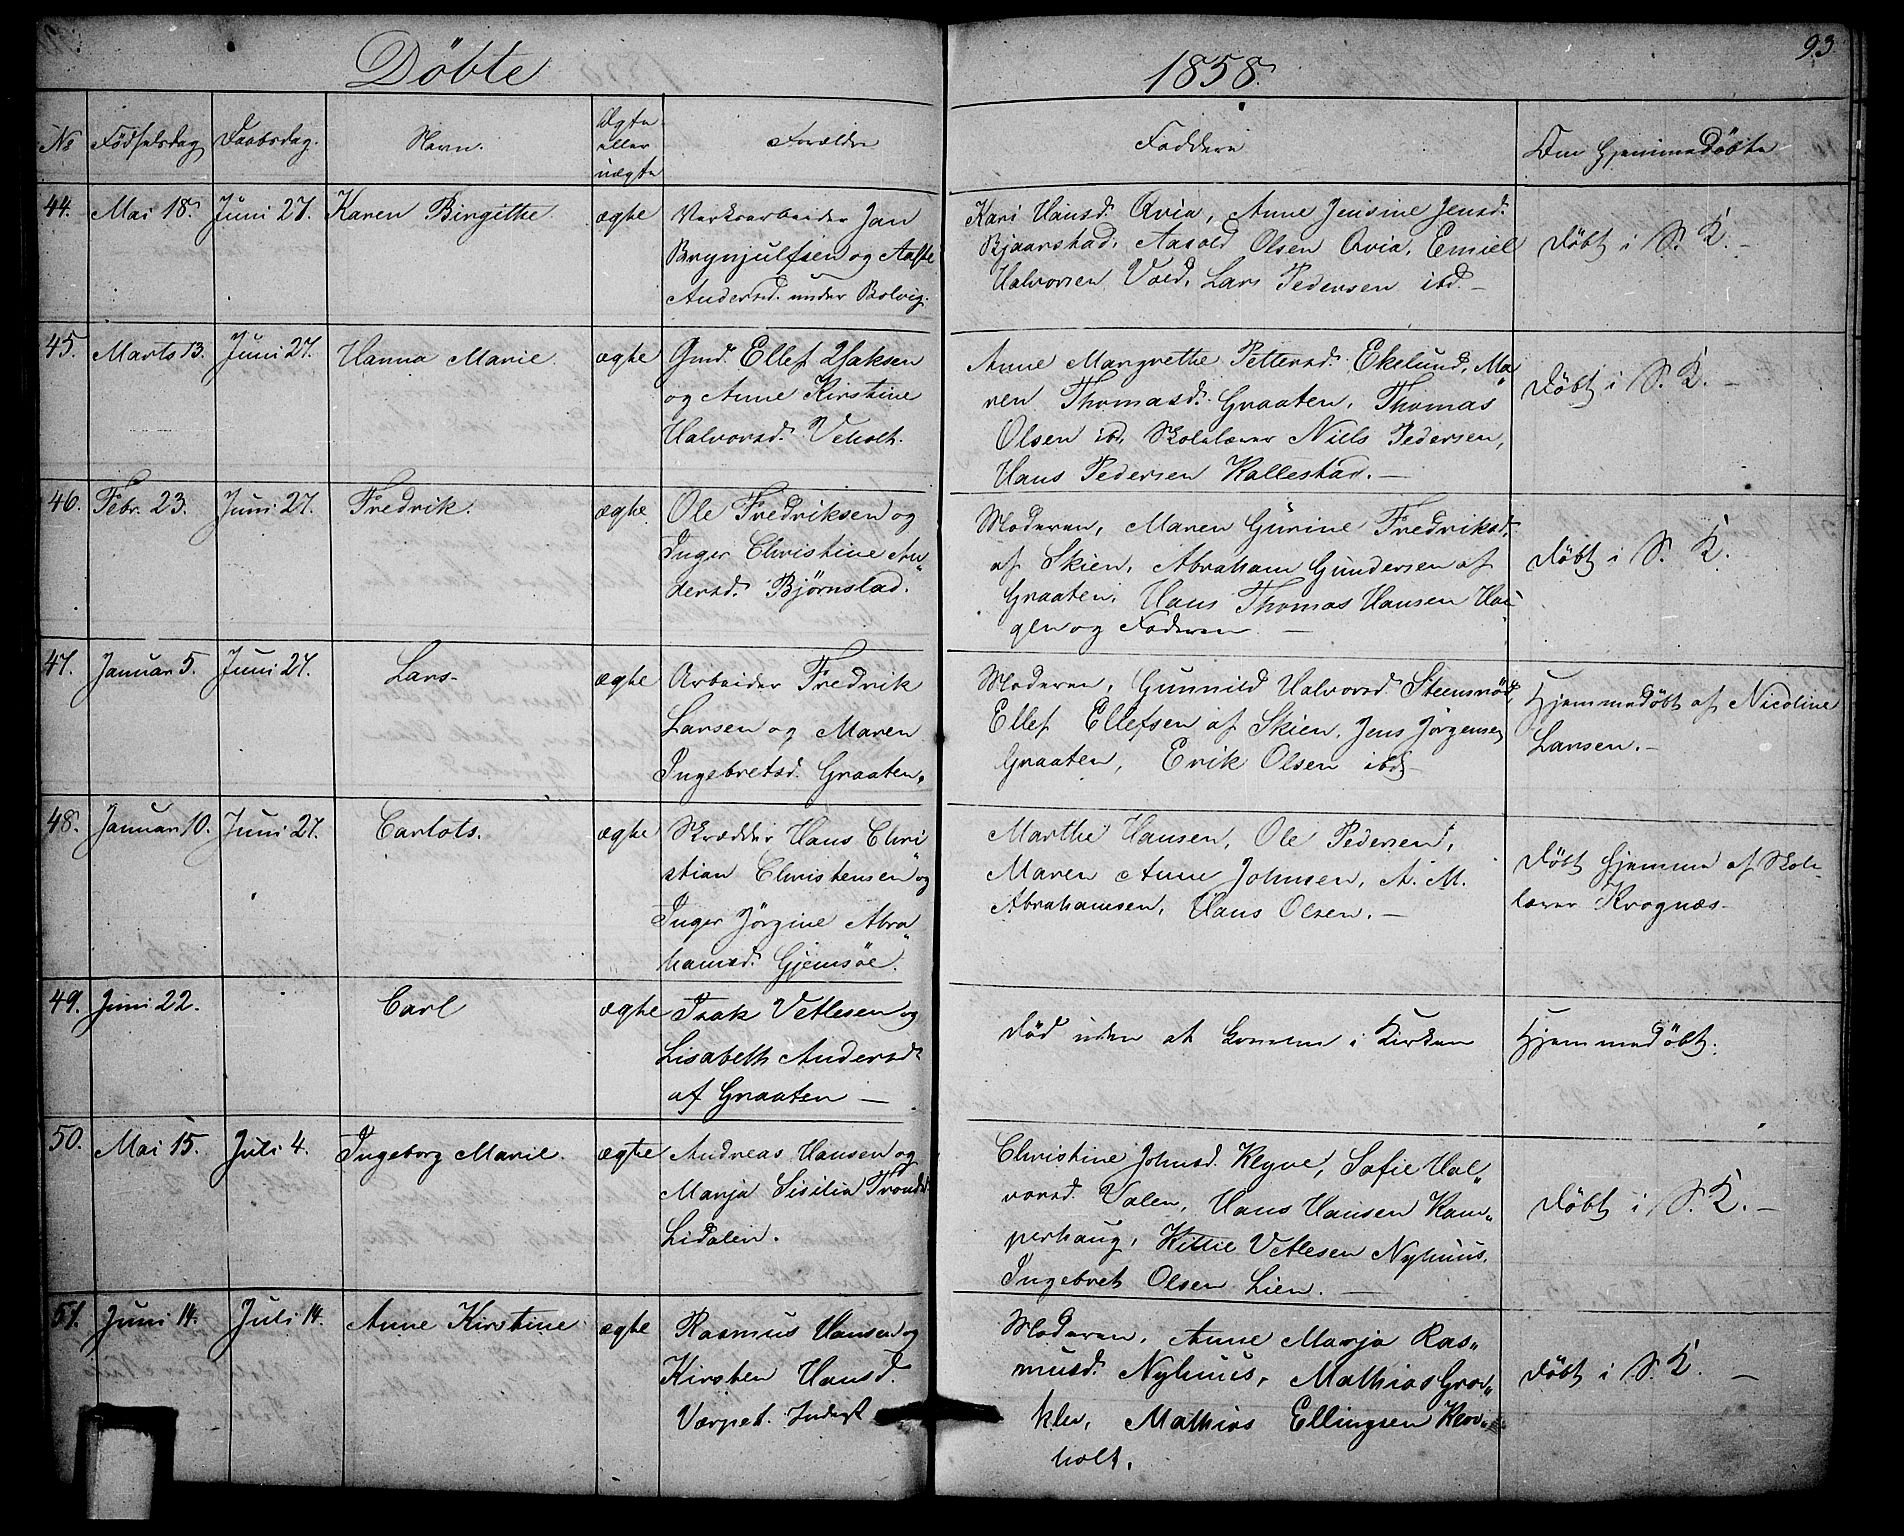 Döbte
1858.
93
No
Födselsdag
Daabsdag.
Navn.
Ægte
eller
uægte
Forældre
Faddere
Om Hjemmedöbte
44.
Mai 18.
Juni 27.
Karen Birgithe
ægte
Verksarbeider Jan
Brynjulfsen og Aaste
Andersd. under Bolvig.
Kari Hansd. Qvia, Anne Jensine Jensd.
Bjaarstad, Aasold Olsen Qvia, Emiel
Halvorsen Vold, Lars Pedersen ibd. —
Døbt i S. K. —
45.
Marts 13.
Juni 27.
Hanna Marie
ægte
Gmd. Ellef Isaksen
og Anne Kirstine
Halvorsd. Veholt.
Anne Margrethe Pettersd. Ekelund, Ma„
ren Thomasd. Graaten, Thomas
Olsen ibd, Skolelærer Niels Pedersen,
Hans Pedersen Kallestad. —
Døbt i S. K. —
46.
Febr. 23.
Juni 27.
Fredrik.
ægte
Ole Fredriksen og
Inger Christine An„
dersd. Bjørnstad.
Moderen, Maren Gurine Fredriksd.
af Skien, Abraham Gundersen af
Graaten, Hans Thomas Hansen Hau„
gen og Faderen —
Døbt i S. K.
47.
Januar 5.
Juni 27.
Lars
ægte
Arbeider Fredrik
Larsen og Maren
Ingebretsd. Graaten.
Moderen, Gunnild Halvorsd. Steensrød,
Ellef Ellefsen af Skien, Jens Jörgensen
Graaten, Erik Olsen ibd —
Hjemmedöbt af Nicoline
Larsen. —
48.
Januar 10.
Juni 27.
Carlots.
ægte
Skrædder Hans Chri
stian Christensen og
Inger Jörgine Abra„
hamsd. Gjemsöe.
Marthe Hansen, Ole Pedersen,
Maren Anne Johnsen, A. M.
Abrahamsen, Hans Olsen. —
Döbt hjemme af Skole-
lærer Krognæs
49.
Juni 22.
Carl
ægte
Isak Vetlesen og
Lisabeth Andersd.
af Graaten —
Død uden at komme i Kirken
Hjemmedöbt.
50.
Mai 15.
Juli 4.
Ingeborg Marie.
ægte
Andreas Hansen og
Marja Sisilia Trondsd.
Lidalen.
Christine Johnsd. Klyve, Sofie Hal„
vorsd. Valen, Hans Hansen Kam„
perhaug, Kittil Vetlesen Nyhuus,
Ingebret Olsen Lien. —
Døbt i S. K. —
51.
Juni 14.
Juli 14.
Anne Kirstine
ægte
Rasmus Hansen og
Kirsten Hansd.
Værpet.
Moderen, Anne Marja Ras„
musd. Nyhuus, Mathias Gra„
klev, Mathias Ellingsen
holt.
Døbt i S. K. —